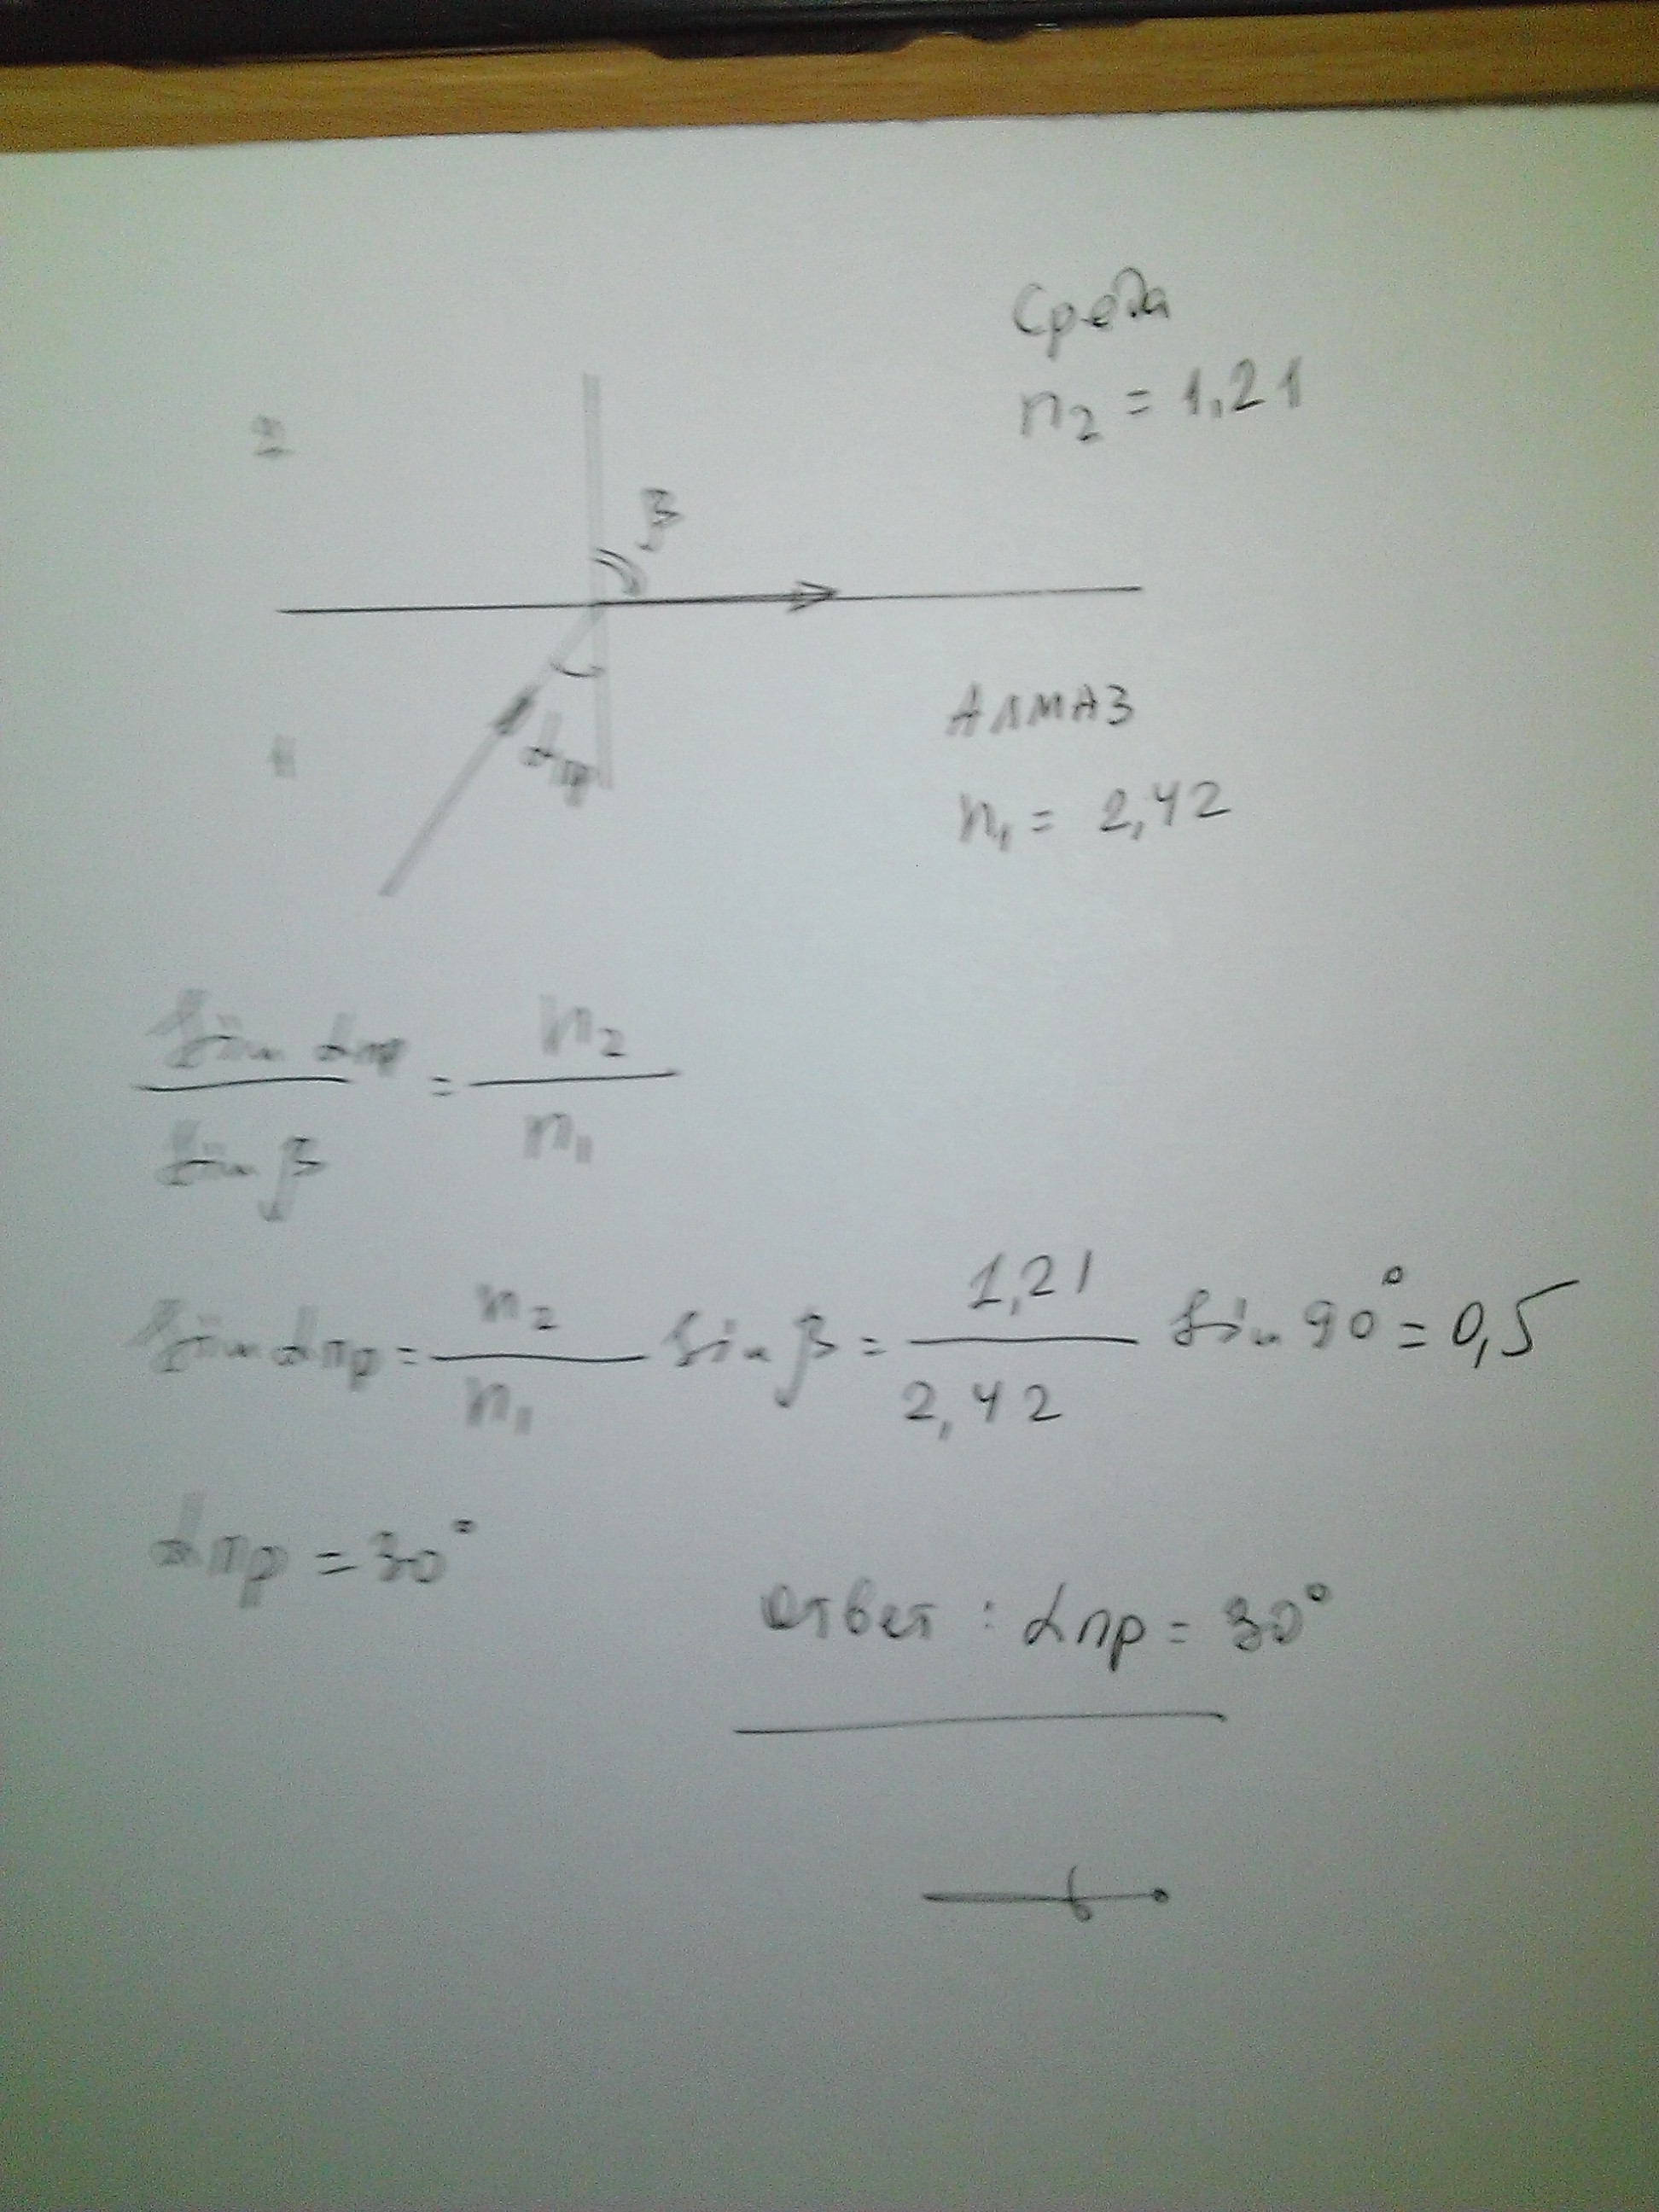 Среда
n₂ = 1,21
2
β
αпр
АЛМАЗ
n₁ = 2,42
sin αпр / sin β = n₂ / n₁
sin αпр = n₂ / n₁ sin β = 1,21 / 2,42 sin 90° = 0,5
αпр = 30°
ответ : αпр = 30°